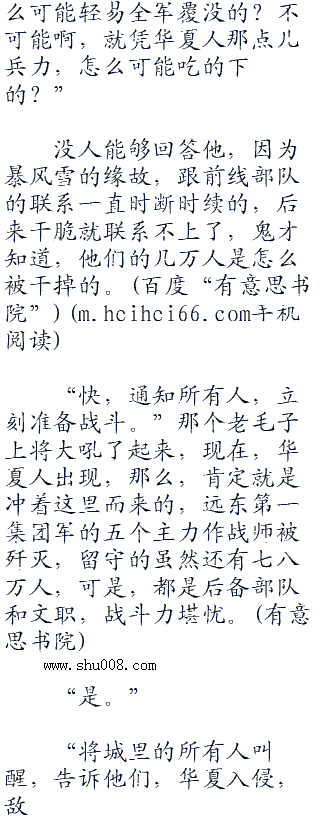 么可能轻易全军覆没的？不
可能啊，就凭华夏人那点儿
兵力，怎么可能吃的下
的？”
没人能够回答他，因为
暴风雪的缘故，跟前线部队
的联系一直时断时续的，后
来干脆就联系不上了，鬼才
知道，他们的几万人是怎么
被干掉的。(百度“有意思书
院”)(m.hcihci66.com手机
阅读)
“快，通知所有人，立
刻准备战斗。”那个老毛子
上将大吼了起来，现在，华
夏人出现，那么，肯定就是
冲着这里而来的，远东第一
集团军的五个主力作战师被
歼灭，留守的虽然还有七八
万人，可是，都是后备部队
和文职，战斗力堪忧。(有意
思书院)
www.shu008.com
“是。”
“将城里的所有人叫
醒，告诉他们，华夏入侵，
敌